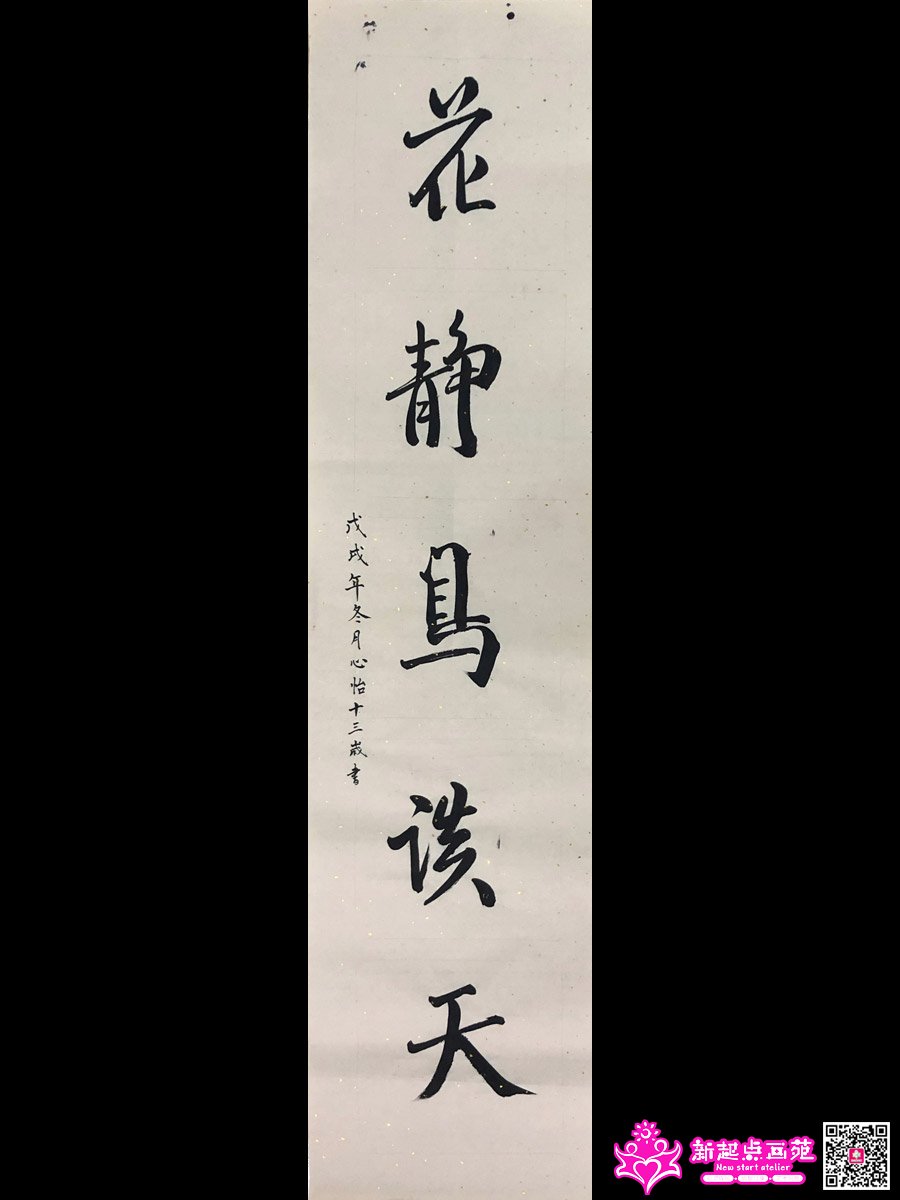 花静鳥谈天
戊戌年冬月心怡十三歲書
新起点画苑
New start atelier